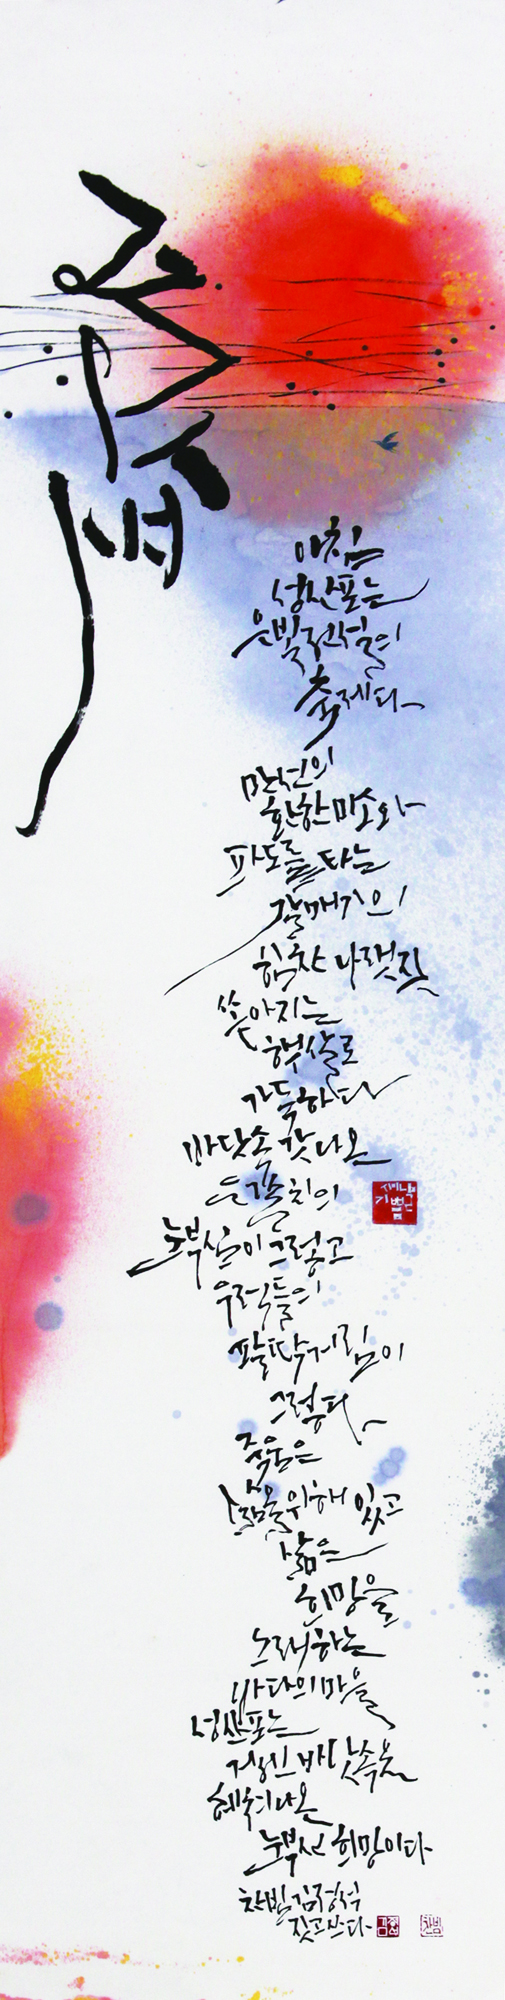 아침
성산포는
은빛 전설의
축제다
만선의
환한 미소와
파도를 타는
갈매기의
힘찬 나랫짓
쏟아지는
햇살로
가득하다
바닷속 갓 나온
은갈치의
눈부심이 그렇고
우럭들의
팔딱거림이
그렇다
죽음은
삶을 위해 있고
삶은
희망을
노래하는
바다의 마을
성산포는
거센 바닷속을
헤쳐나온
눈부신 희망이다
김정석
짓고쓰다